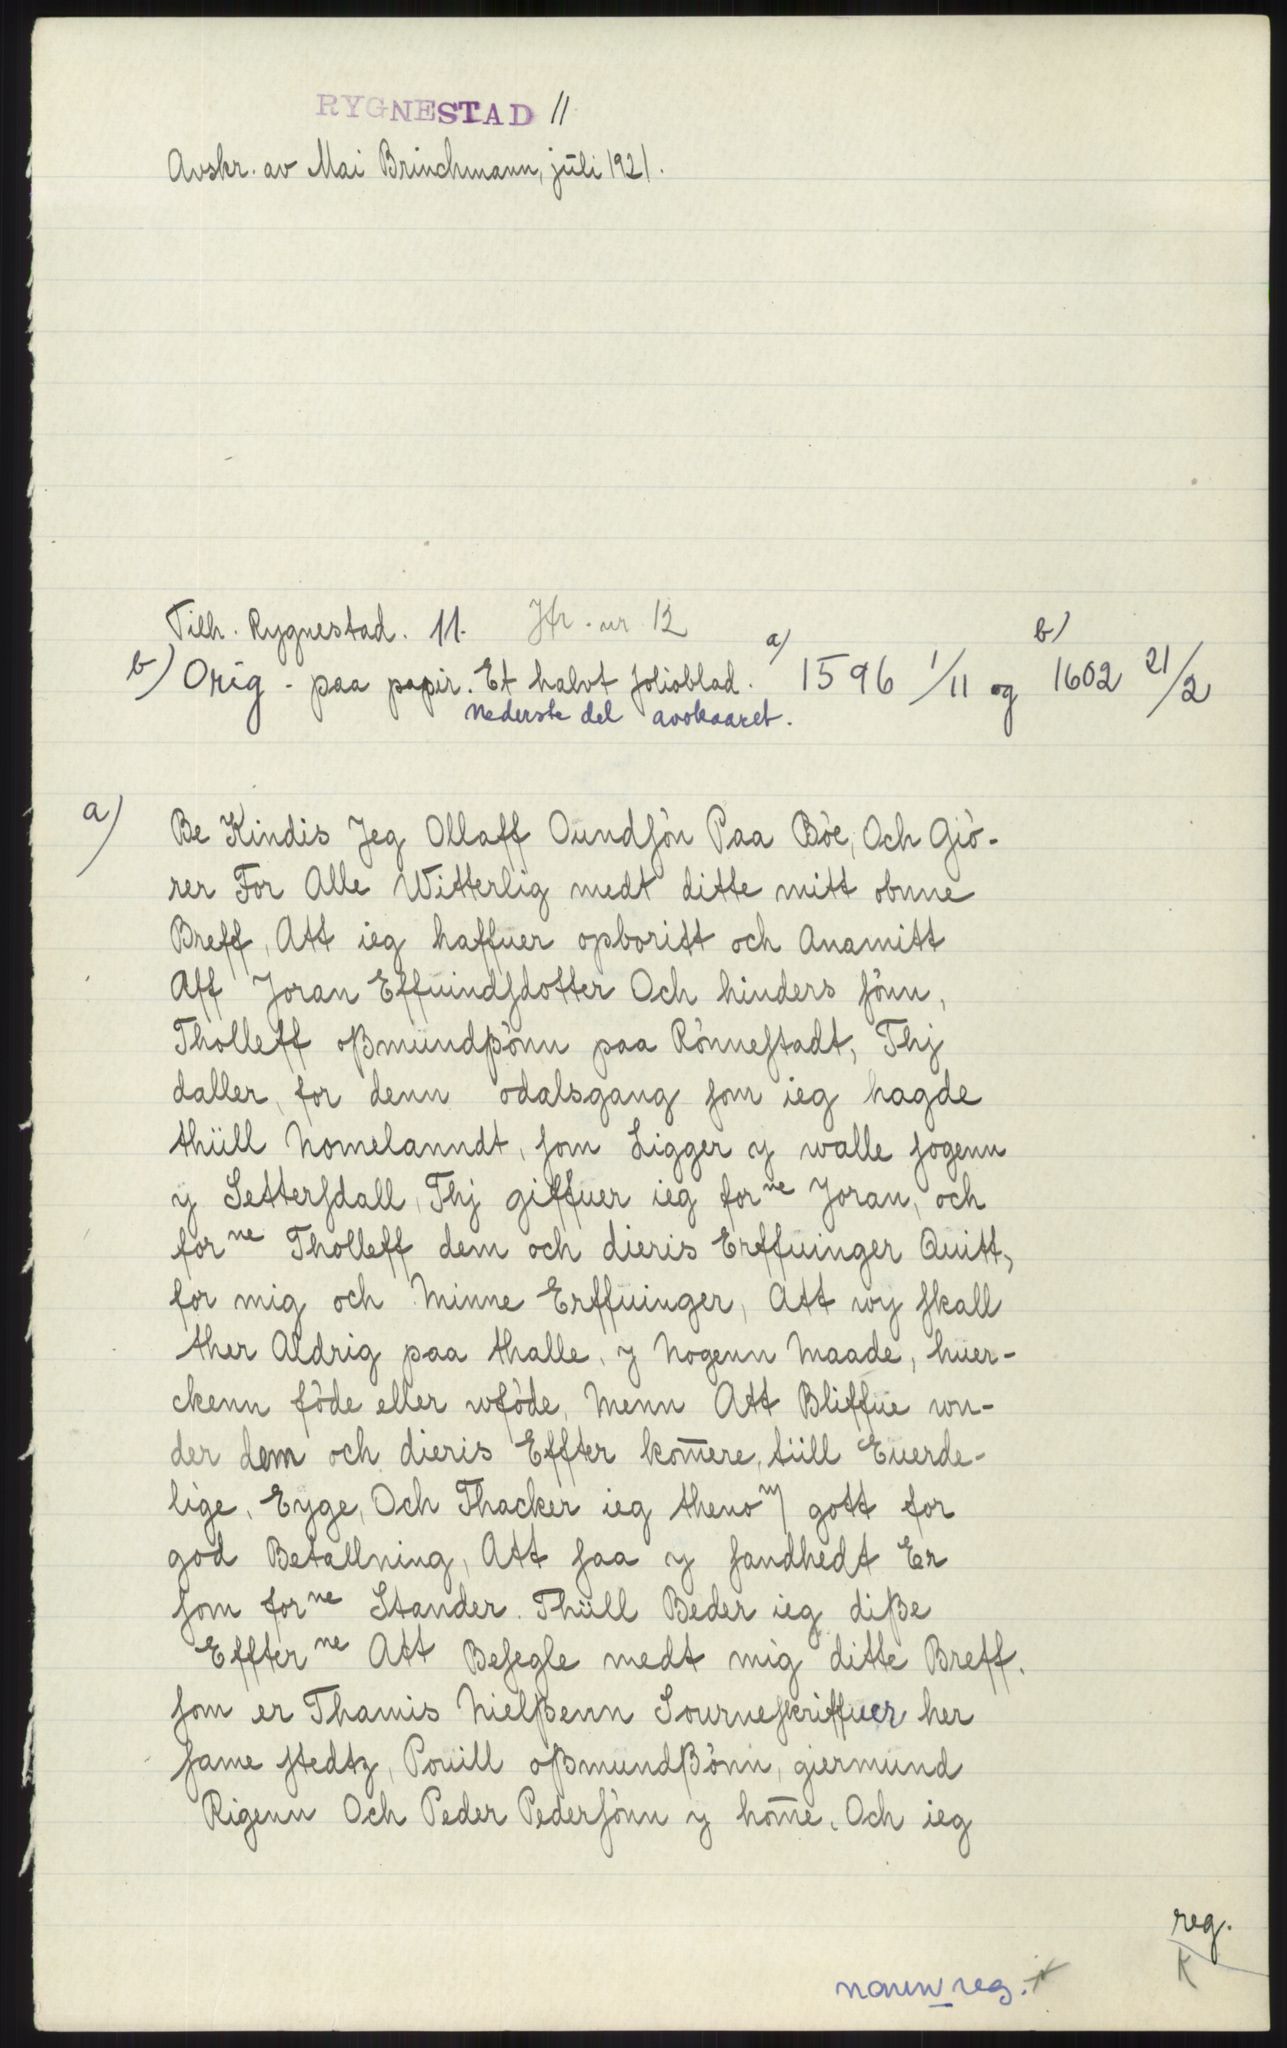 RYGNESTAD 11
Avskr. av Mai Brinchmann, juli 1921.
Tilh. Rygnestad. 11. Jfr. nr 12
b) Orig - paa papir. Et halvt folioblad. a) 1596 1/11 og b) 1602 21/2
Nederste del avskaaret.
a) Be Kindis Jeg Ollaff Oundsön Paa Böe, Och Giö-
rer For Alle Witterlig medt ditte mitt obnne
Breff, Att ieg haffuer opboritt och Anamitt
Aff Joran Effuindsdotter Och hinders sönn,
Tholleff oßmundßönn paa Rönnestadt, Thj
daller, for denn odalsgang som ieg hagde
thüll Nomelanndt, som Ligger y walle sogenn
y Settersdall, Thj giffuer ieg forne Joran, och
forne Tholleff dem och dieris Erffuinger Quitt,
for mig och Minne Erffuinger, Att wy skall
ther Aldrig paa thalle, y Nogenn Maade, huer-
ckenn föde eller wföde, Menn Att Bliffue wn-
der dem och dieris Effter kom̄ere, tüll Euerde-
lige, Eyge, Och Thacker ieg thenom gott for
god Betallning, Att saa y sandhedt Er
som forne Stander. Thüll Beder ieg diße
Effterne Att Besegle medt mig ditte Breff.
som er Thamis Nielßenn Sourneskriffuer her
same stedtz, Pouill oßmundßönn, giermund
Rigenn Och Peder Pedersönn y hom̄e, Och ieg
reg.
K
navnreg.